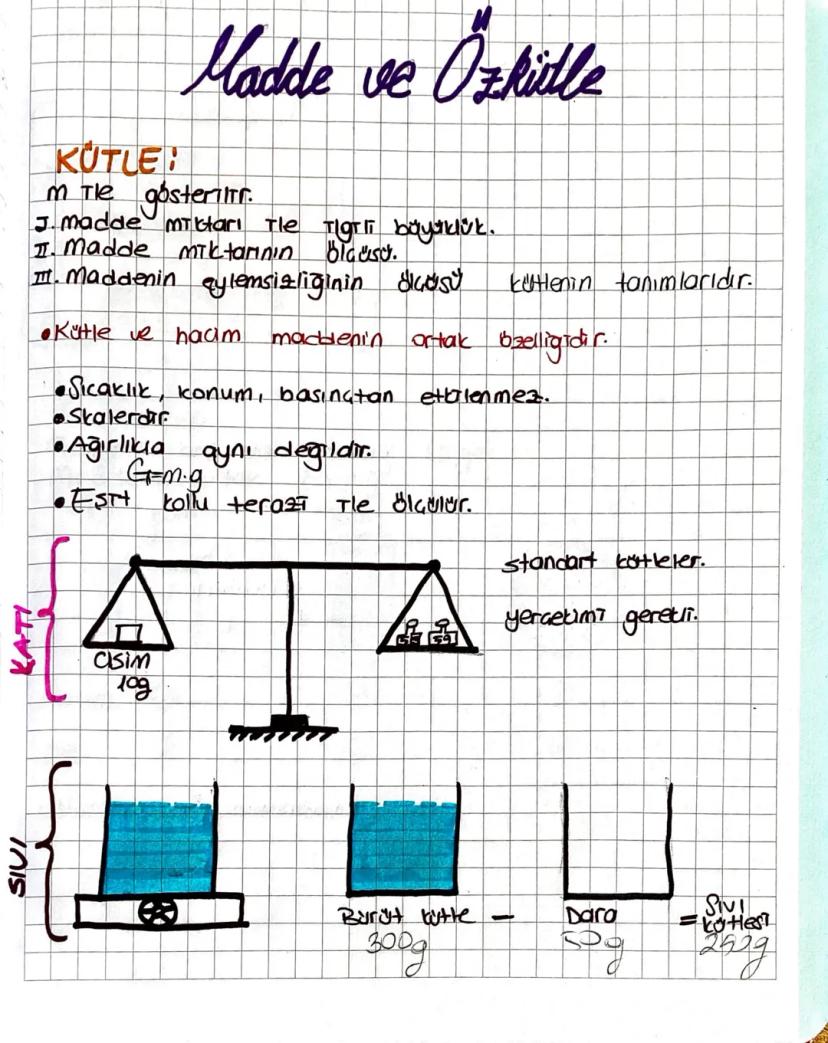 Madde ve Özkütle
KÜTLE:
m ile gösterilir.
I. madde miktarı ile ilgili büyüklük.
II. Madde miktarının ölçüsü.
III. Maddenin eylemsizliğinin ölçüsü kütlenin tanımlarıdır.
•Kütle ve hacim maddenin ortak özelliğidir.
•Sıcaklık, konum, basınçtan etkilenmez.
•Skalerdir.
•Ağırlıkla aynı değildir.
G=m.g
•Eşit kollu terazi ile ölçülür.
KATI
standart kütleler.
yerçekimi gerekli.
5g 5g
Cisim
10g
SIVI
Bürüt kütle − Dara = Sıvı kütlesi
300g 50g 250g